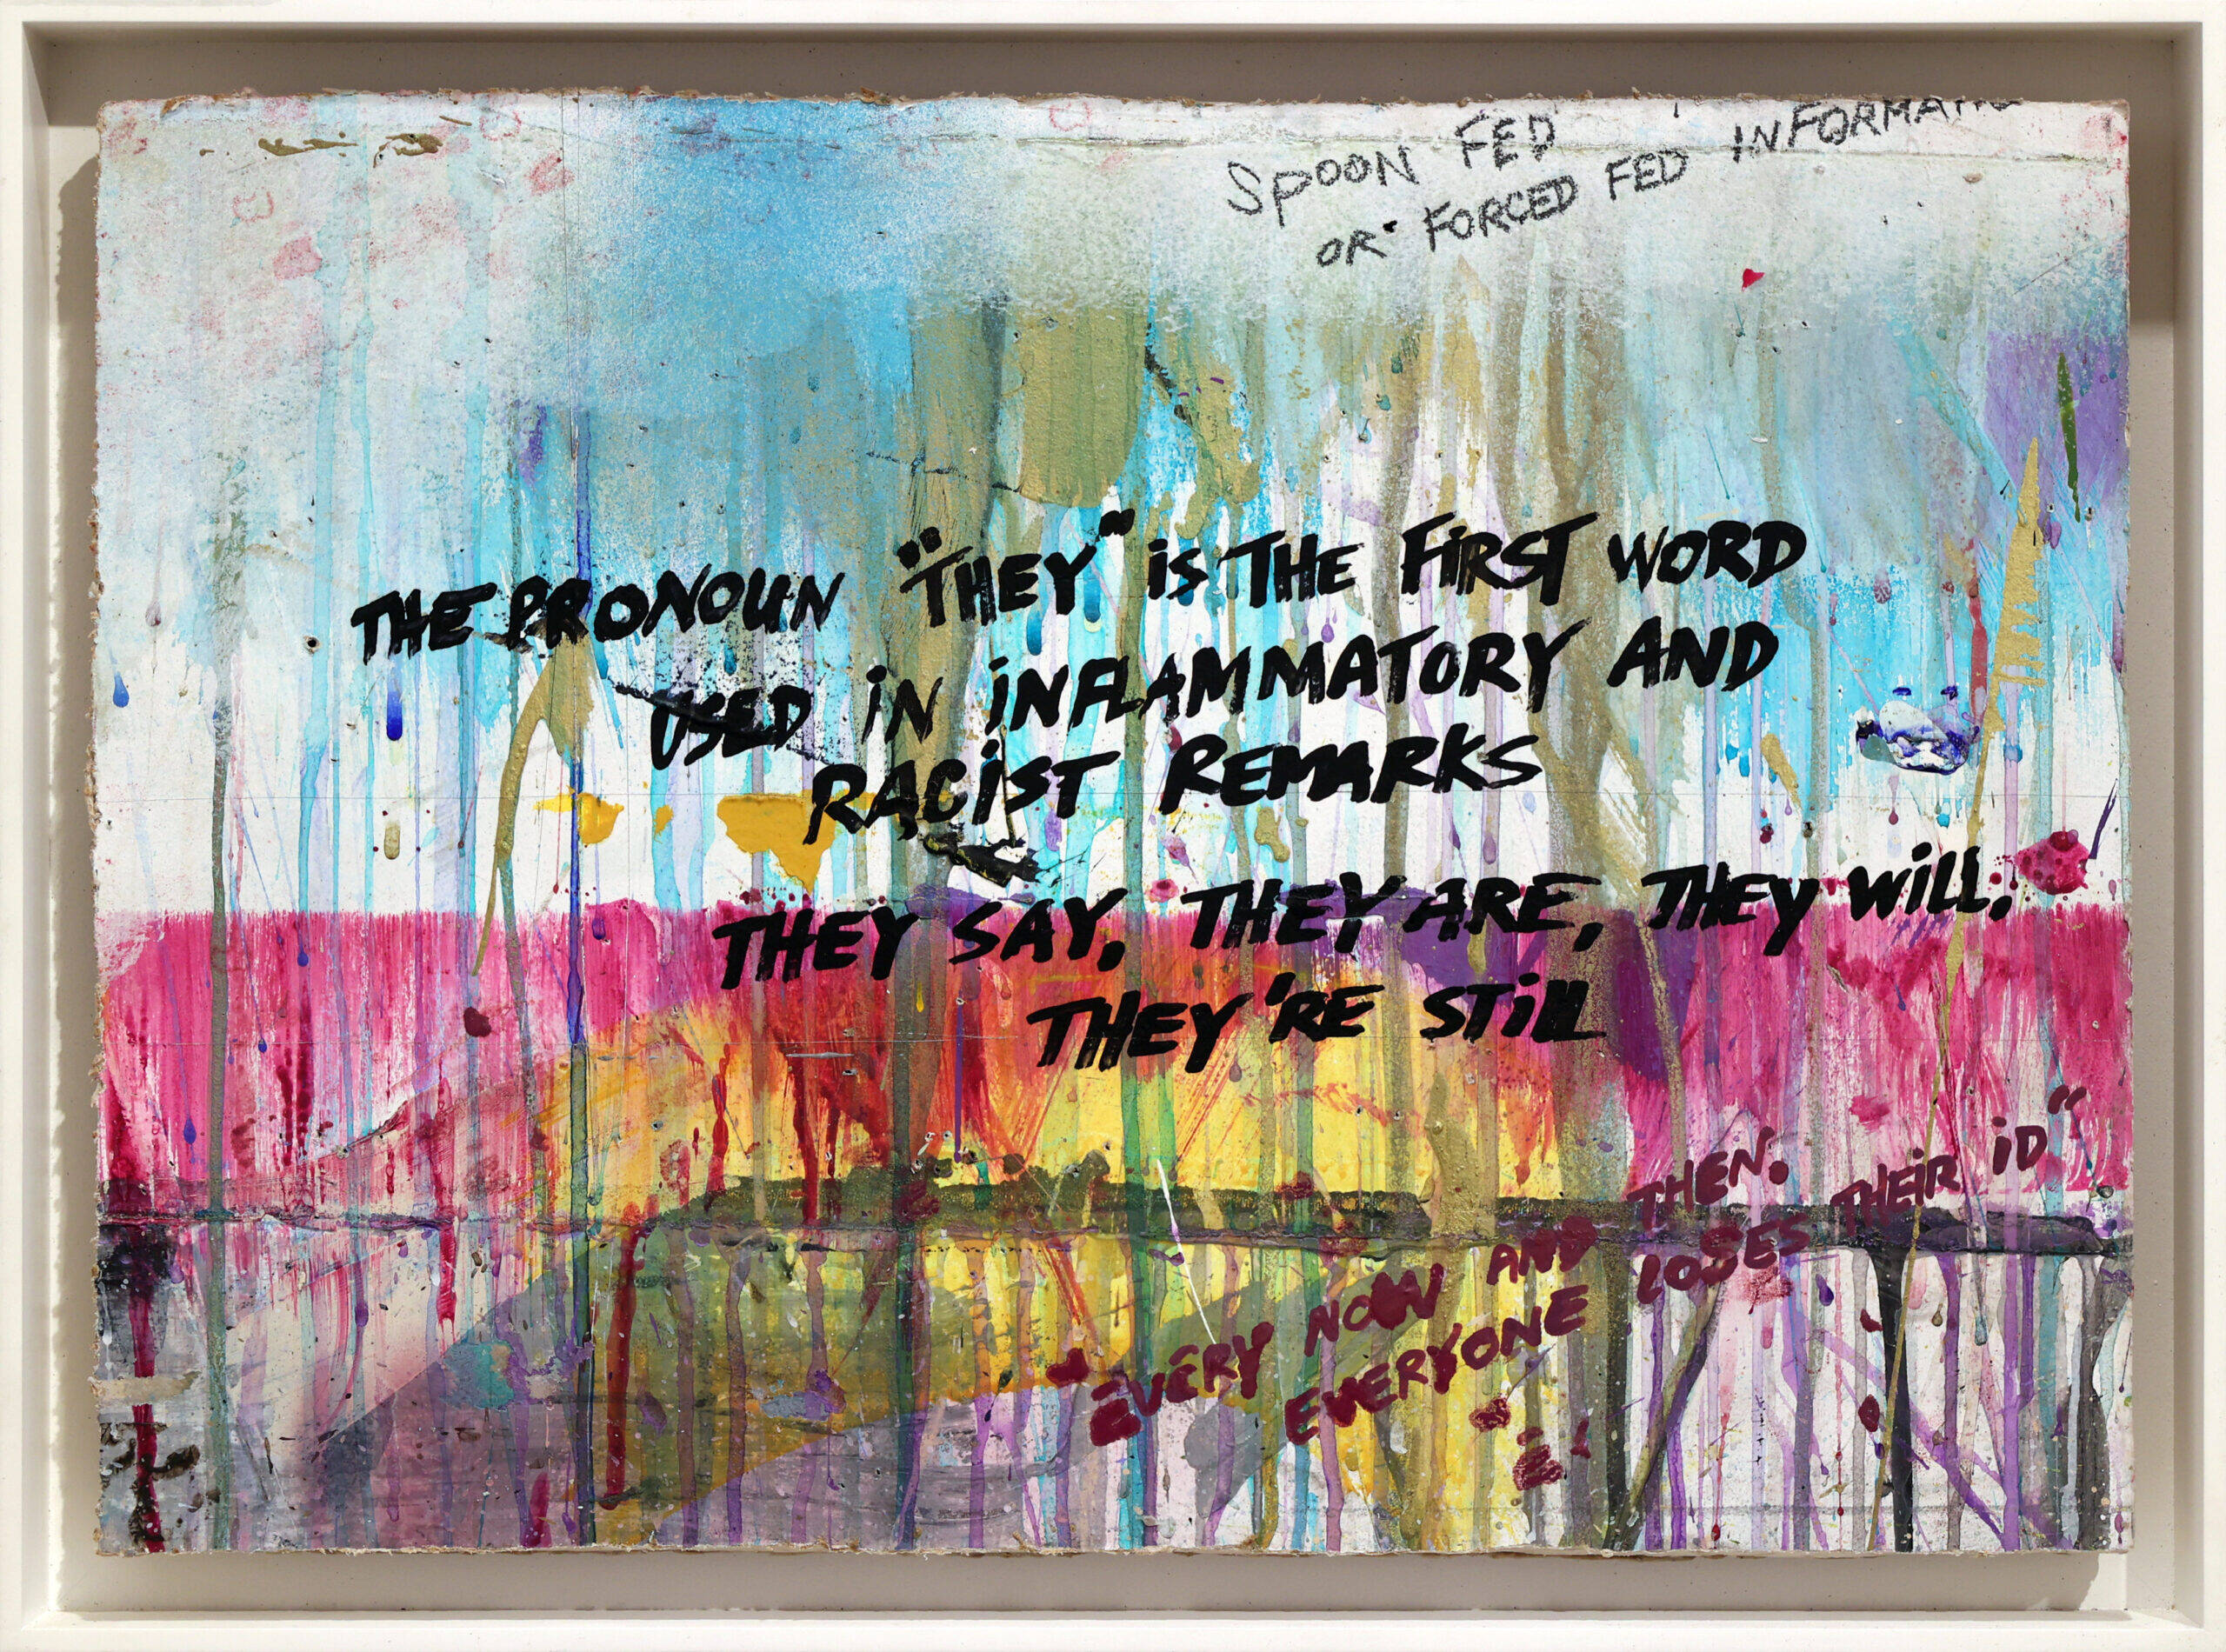 SPOON FED
OR FORCED FED INFORMATIO
THE PRONOUN "THEY" iS THE FiRST WORD
USED iN iNFLAMMATORY AND
RACiST REMARKS
THEY SAY, THEY ARE, THEY WiLL,
THEY'RE STiLL
"EVERY NOW AND THEN.
EVERYONE LOSES THEiR iD"